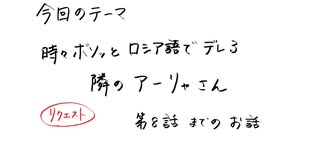 今回のテーマ
時々ボソッとロシア語でデレる
隣のアーリャさん
リクエスト
第8話までのお話